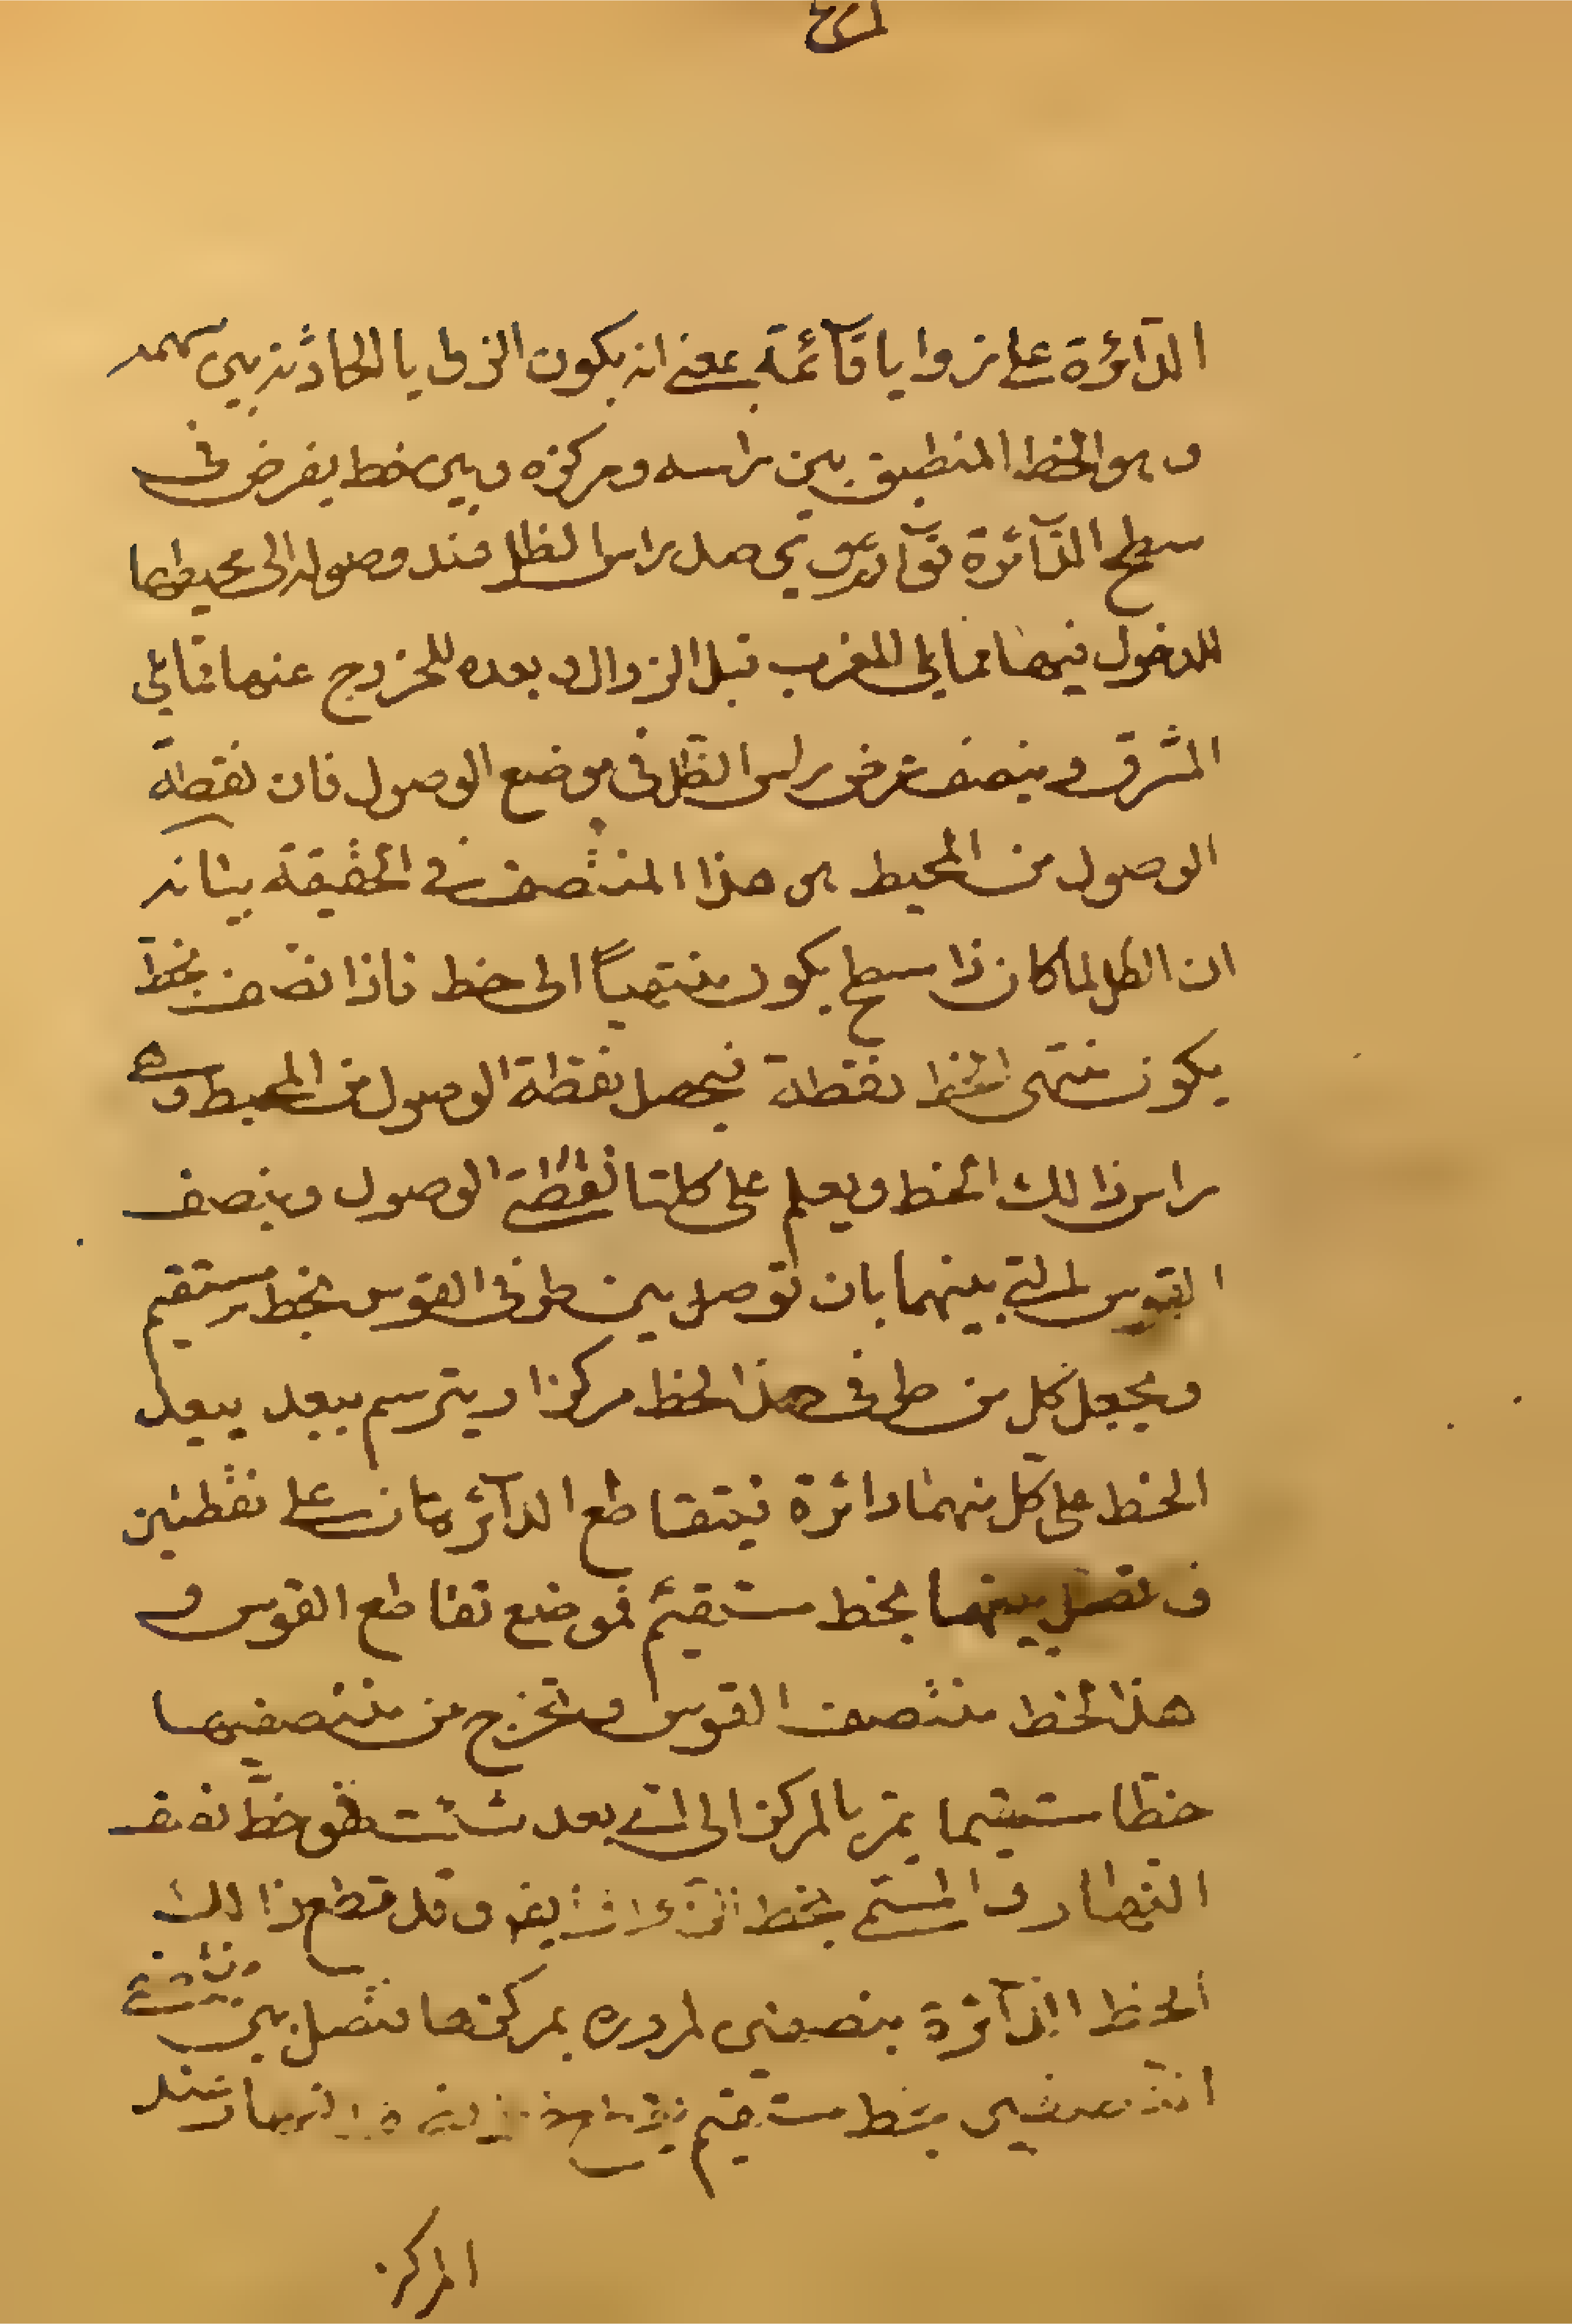 الدآئرة على زوايا قآئمة بمعنى ان يكون الزوايا الحادثة بين سهمه
وهو الخط المنطبق بين راسه ومركزه وبين خط يفرض فى
سطح الدآئرة راس الظل عند وصوله الى محيطها
للدخول فيها مما يلى المغرب قبل الزوال وبعده للخروج عنها مما يلى
المشرق وينصف عرض راس الظل فى موضع الوصول فان نقطة
الوصول من المحيط هى هذا المنتصف فى الحقيقة بيانه
ان الظل لما كان ذا سطح يكون منتهياً الى خط فاذا نصف بخط
يكون منتهى الخط نقطة فيحصل نقطة الوصول من المحيط وهى
راس ذالك الخط ويعلم على كلتا نقطتى الوصول وينصف
القوس التى بينهما بان توصل بين طرفى القوس بخط مستقيم
ويجعل كل من طرفى هذا الخط مركزا ويترسم ببعد ببعد
الخط على كل منهما دائرة فيتقاطع الدآئرتان على نقطتين
فتصل بينهما بخط مستقيم فموضع تقاطع القوس و
هذا الخط منتصف القوس وتخرج من منتصفيها
خطا مستقيما يمر بالمركز الى اى بعد شئت فهو خط نصف
النهار والمسمى بخط الزوال ايضا وقد قطع ذالك
الخط الدآئرة بنصفين لمروره بمركزها فتصل بين
النصفين بخط مستقيم النهار عند
المركز